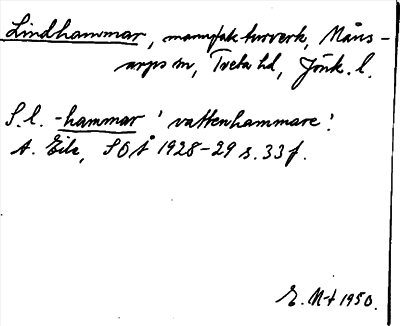 Lindhammar, manufakturverk, Måns-
arps sn, Tveta hd, Jönk. l.
S. l. -hammar 'vattenhammare'.
A. Ek, SOÅ 1928-29 s. 33 f.
E. N-t 1950.